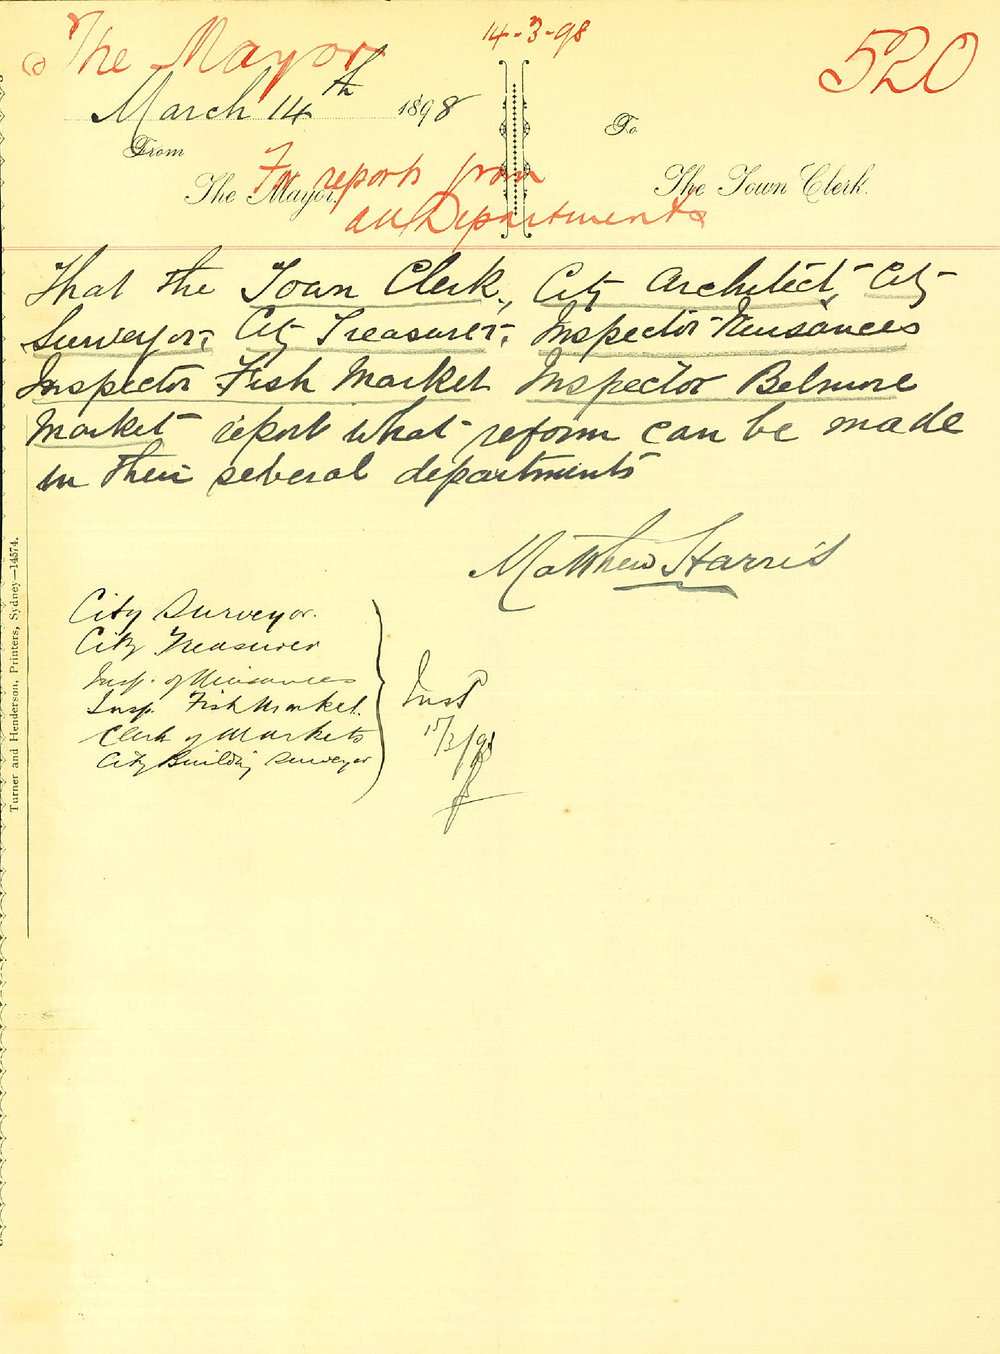 The Mayor
14-3-98
520
March 14th 1898
From
The Mayor.
To
The Town Clerk.
For reports from
all Departments
That the Town Clerk, City Architect, City
Surveyor, City Treasurer, Inspector Nuisances
Inspector Fish Market Inspector Belmore
Market report what reform can be made
in their several departments
Matthew Harris
City Surveyor.
City Treasurer
Insp. of Nuisances
Insp. Fish Market.
Clerk of Markets
City Building Surveyor
15/3/98
Turner and Henderson, Printers, Sydney—14574.